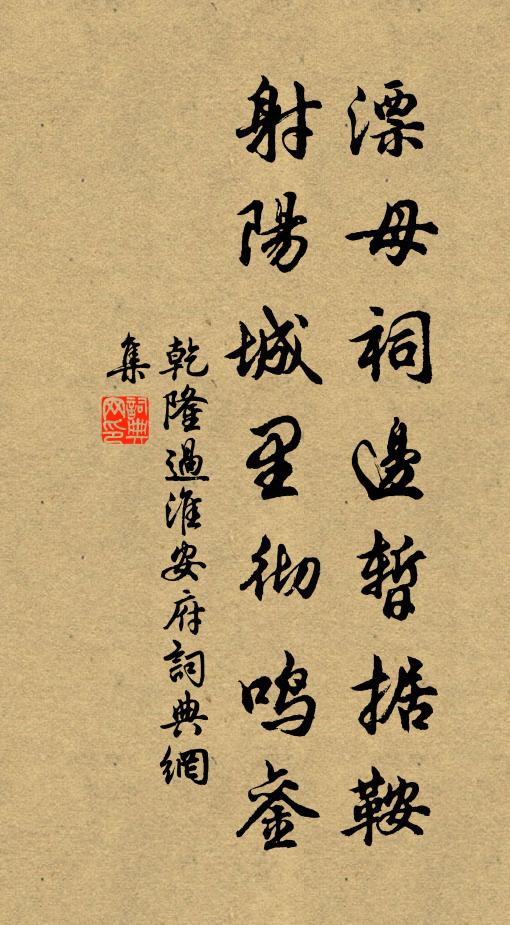 漂母祠邊暫据鞍
射陽城里彻鸣銮
乾隆過淮安府詞典網
集
詞典
网印